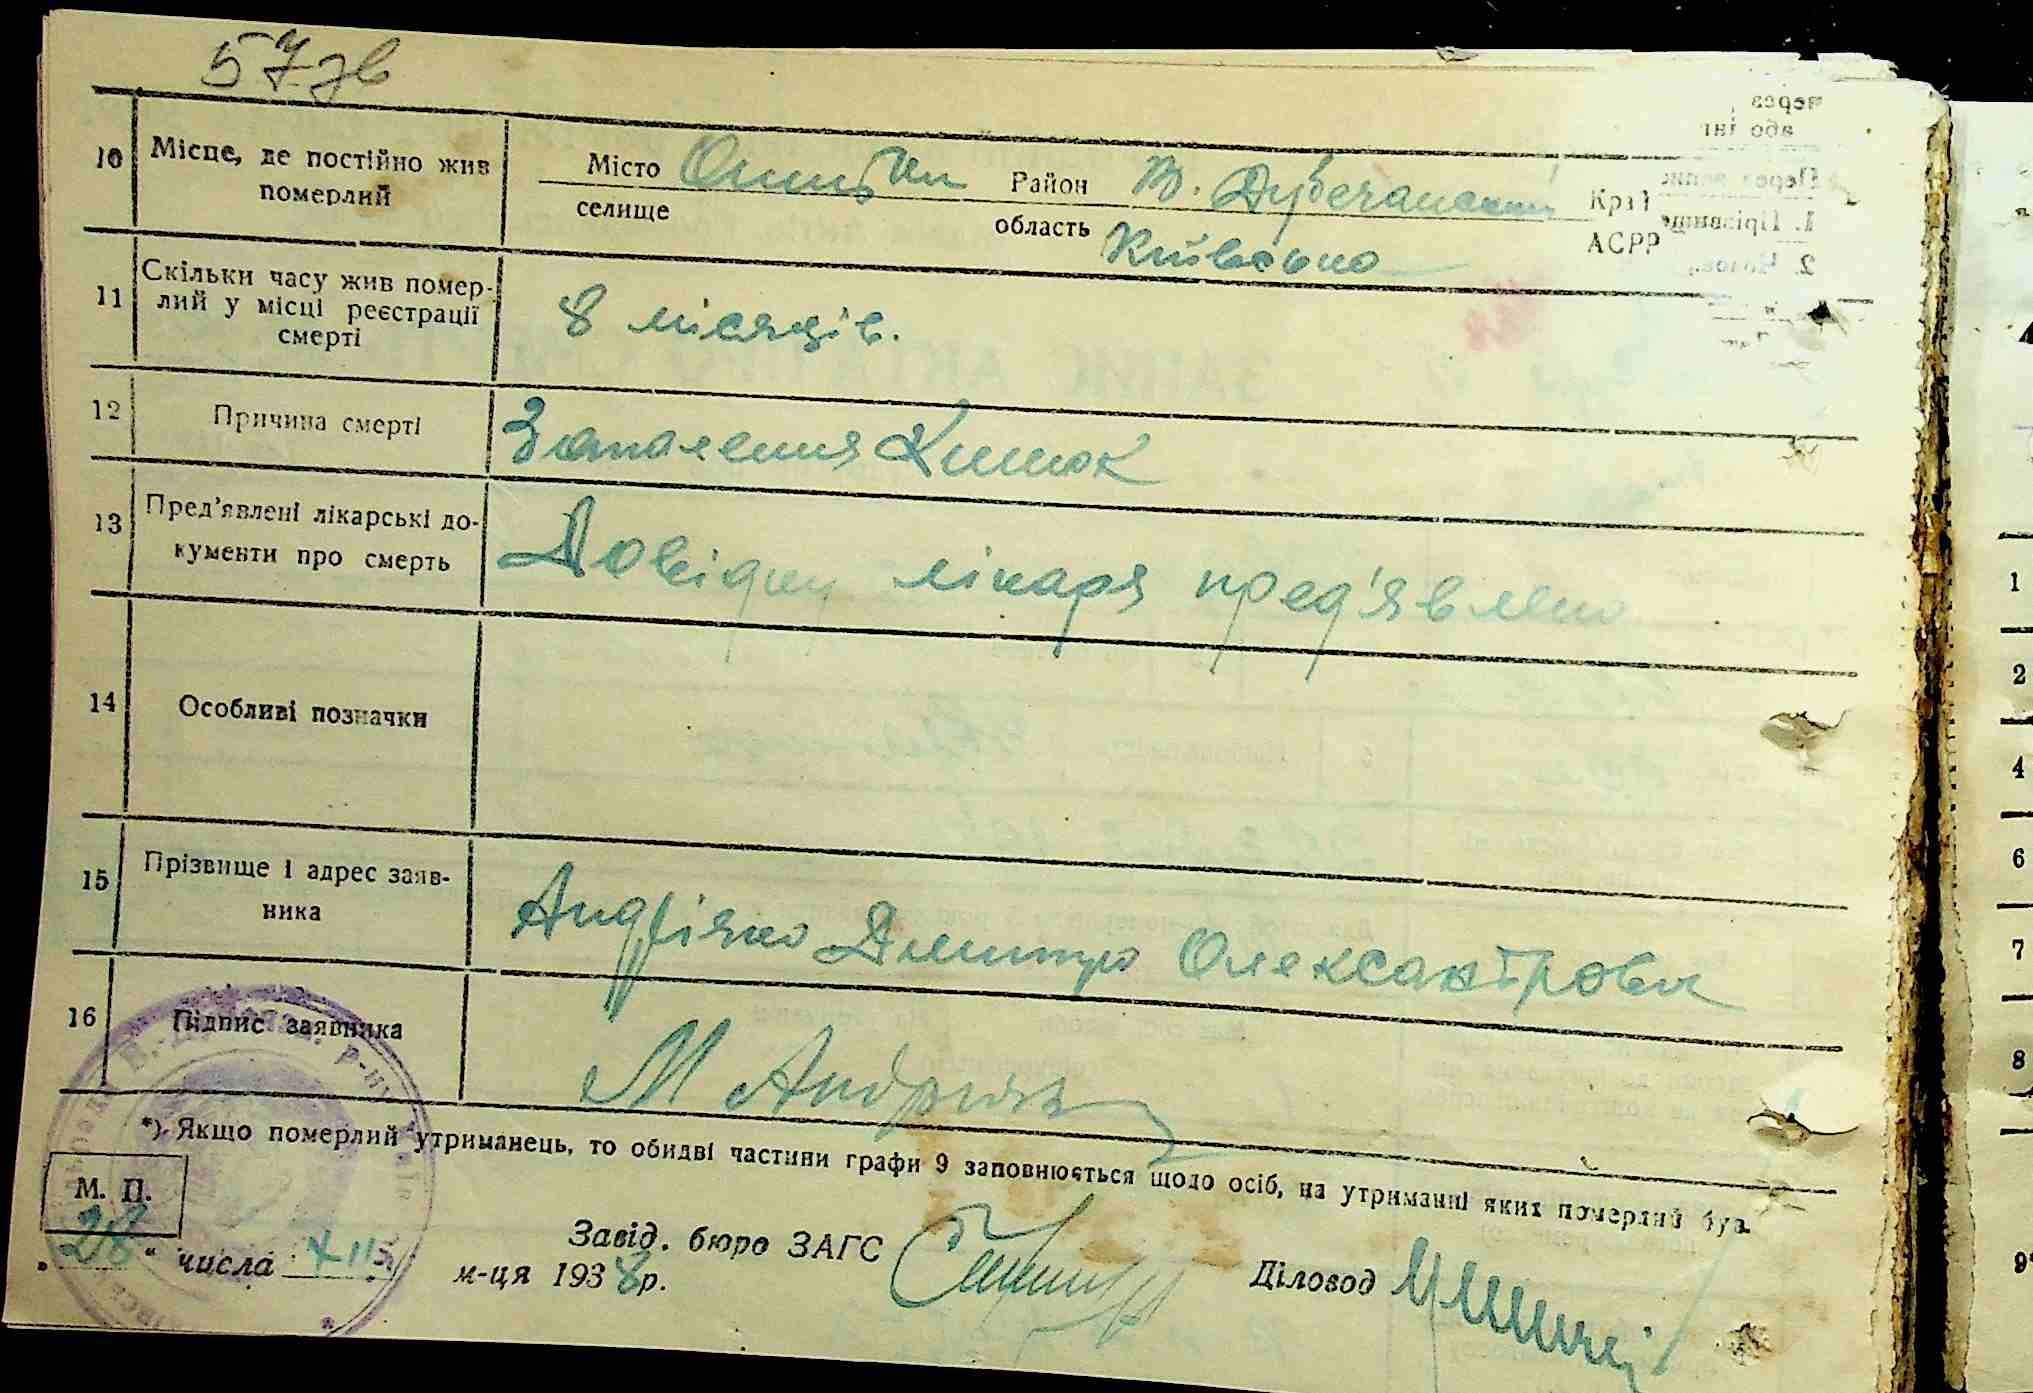 57 зв
10 Місце, де постійно жив померлий
Місто Район В. Дубечанський Край
селище область Київсько АСРР
11 Скільки часу жив помер-
лий у місці реєстрації
смерті
8 місяців.
12 Причина смерті
Запалення Кишок
13 Пред'явлені лікарські до-
кументи про смерть
Довідку лікаря пред'явлено
14 Особливі позначки
15 Прізвище і адрес заяв-
ника
Андріяко Дмитро Олександрови
16 Підпис заявника
М
*) Якщо померлий утриманець, то обидві частини графи 9 заповнюється щодо осіб, на утриманні яких померлий був.
М. П.
"28" числа XII м-ця 1938р.
Завід. бюро ЗАГС
Діловод
1
2
4
6
7
8
9*